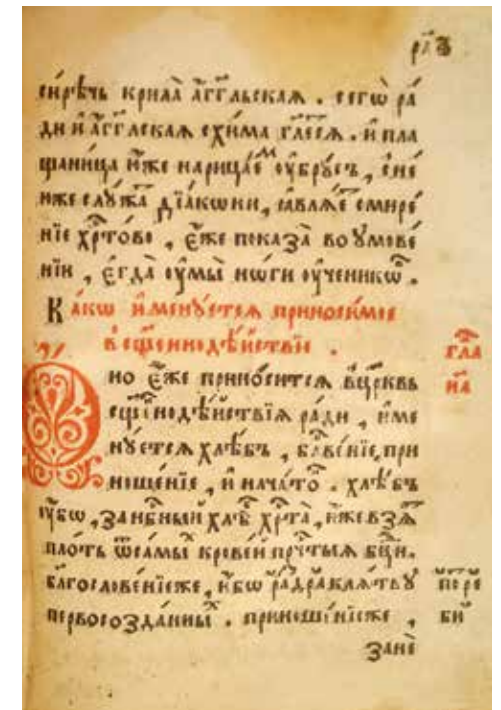 рл҃з
сирѣчь крила̀ а҆́гг҃льская . сегѡ̀ ра́
ди и҆ а҆́гг҃лская схи́ма гл҃ется . и҆ пла
щани́ца и҆́же нарица́еⷨ ѹ҆бру́съ , с не́
и҆же слу́жаⷮ дїа́кѡни , ꙗ҆влѧ́еⷮ смире́
нїе хрⷭ҇то́во , є҆́же показа̀ во ѹ҆мове́
нїи , є҆гда̀ ѹ҆мы̀ но́ги ѹ҆ченикѡ́ⷨ .
Ка́кѡ и҆менꙋ́ется приноси́мое
в сщ҃еннодѣ́йствїе .
Оно̀ є҆́же прино́сится в цр҃квь
сщ҃еннодѣ́йствїѧ ра́ди , и҆ме
нꙋ́ется хлѣ́бъ , бл҃гве́нїе, при
ноше́нїе , и҆ нача́тоⷦ . хлѣ́бъ
ѹ҆́бѡ , за нб҃ный хлѣ́бъ хрⷭ҇та̀ , и҆́же взѧ́ⷮ
пло́ть ѿ са́мыⷯ крове́й прⷱ҇тыѧ бц҃ы .
благослове́нїе же , и҆́бо раздра́ клѧ́твꙋ
первосо́зданныⷯ . приноше́нїе же ,
занѐ
гла
на҃
по́тре
биⷩ